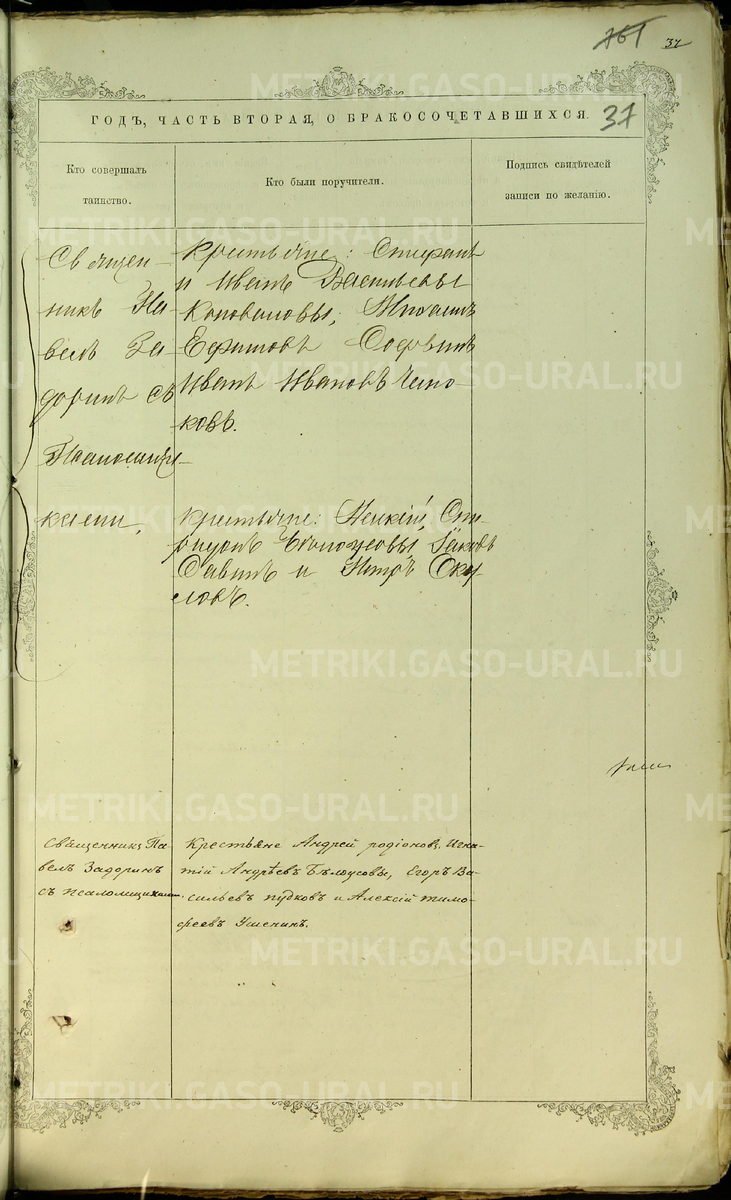 761
37
37
ГОДЪ, ЧАСТЬ ВТОРАЯ, О БРАКОСОЧЕТАВШИХСЯ.
Кто совершалъ
таинство.
Кто были поручители.
Подпись свидѣтелей
записи по желанію.
Священ-
никъ Па-
велъ За-
доринъ съ
Псаломщи-
ками.
Крестьяне: Стефанъ
и Иванъ Васильевы
Коноваловы, Михаилъ
Ефимовъ
Иванъ Ивановъ
ковъ.
Крестьяне:
Бѣлоусовы Яковъ
и Петръ Оку-
ловъ.
Священникъ Па-
велъ Задоринъ
съ псаломщиками.
Крестьяне Андрей родіонов, Игна-
тій Андрѣевъ Бѣлоусовы, Егоръ Ва-
сильевъ пудковъ и Алексій тимо-
феевъ Ушенинъ.
METRIKI.GASO-URAL.RU